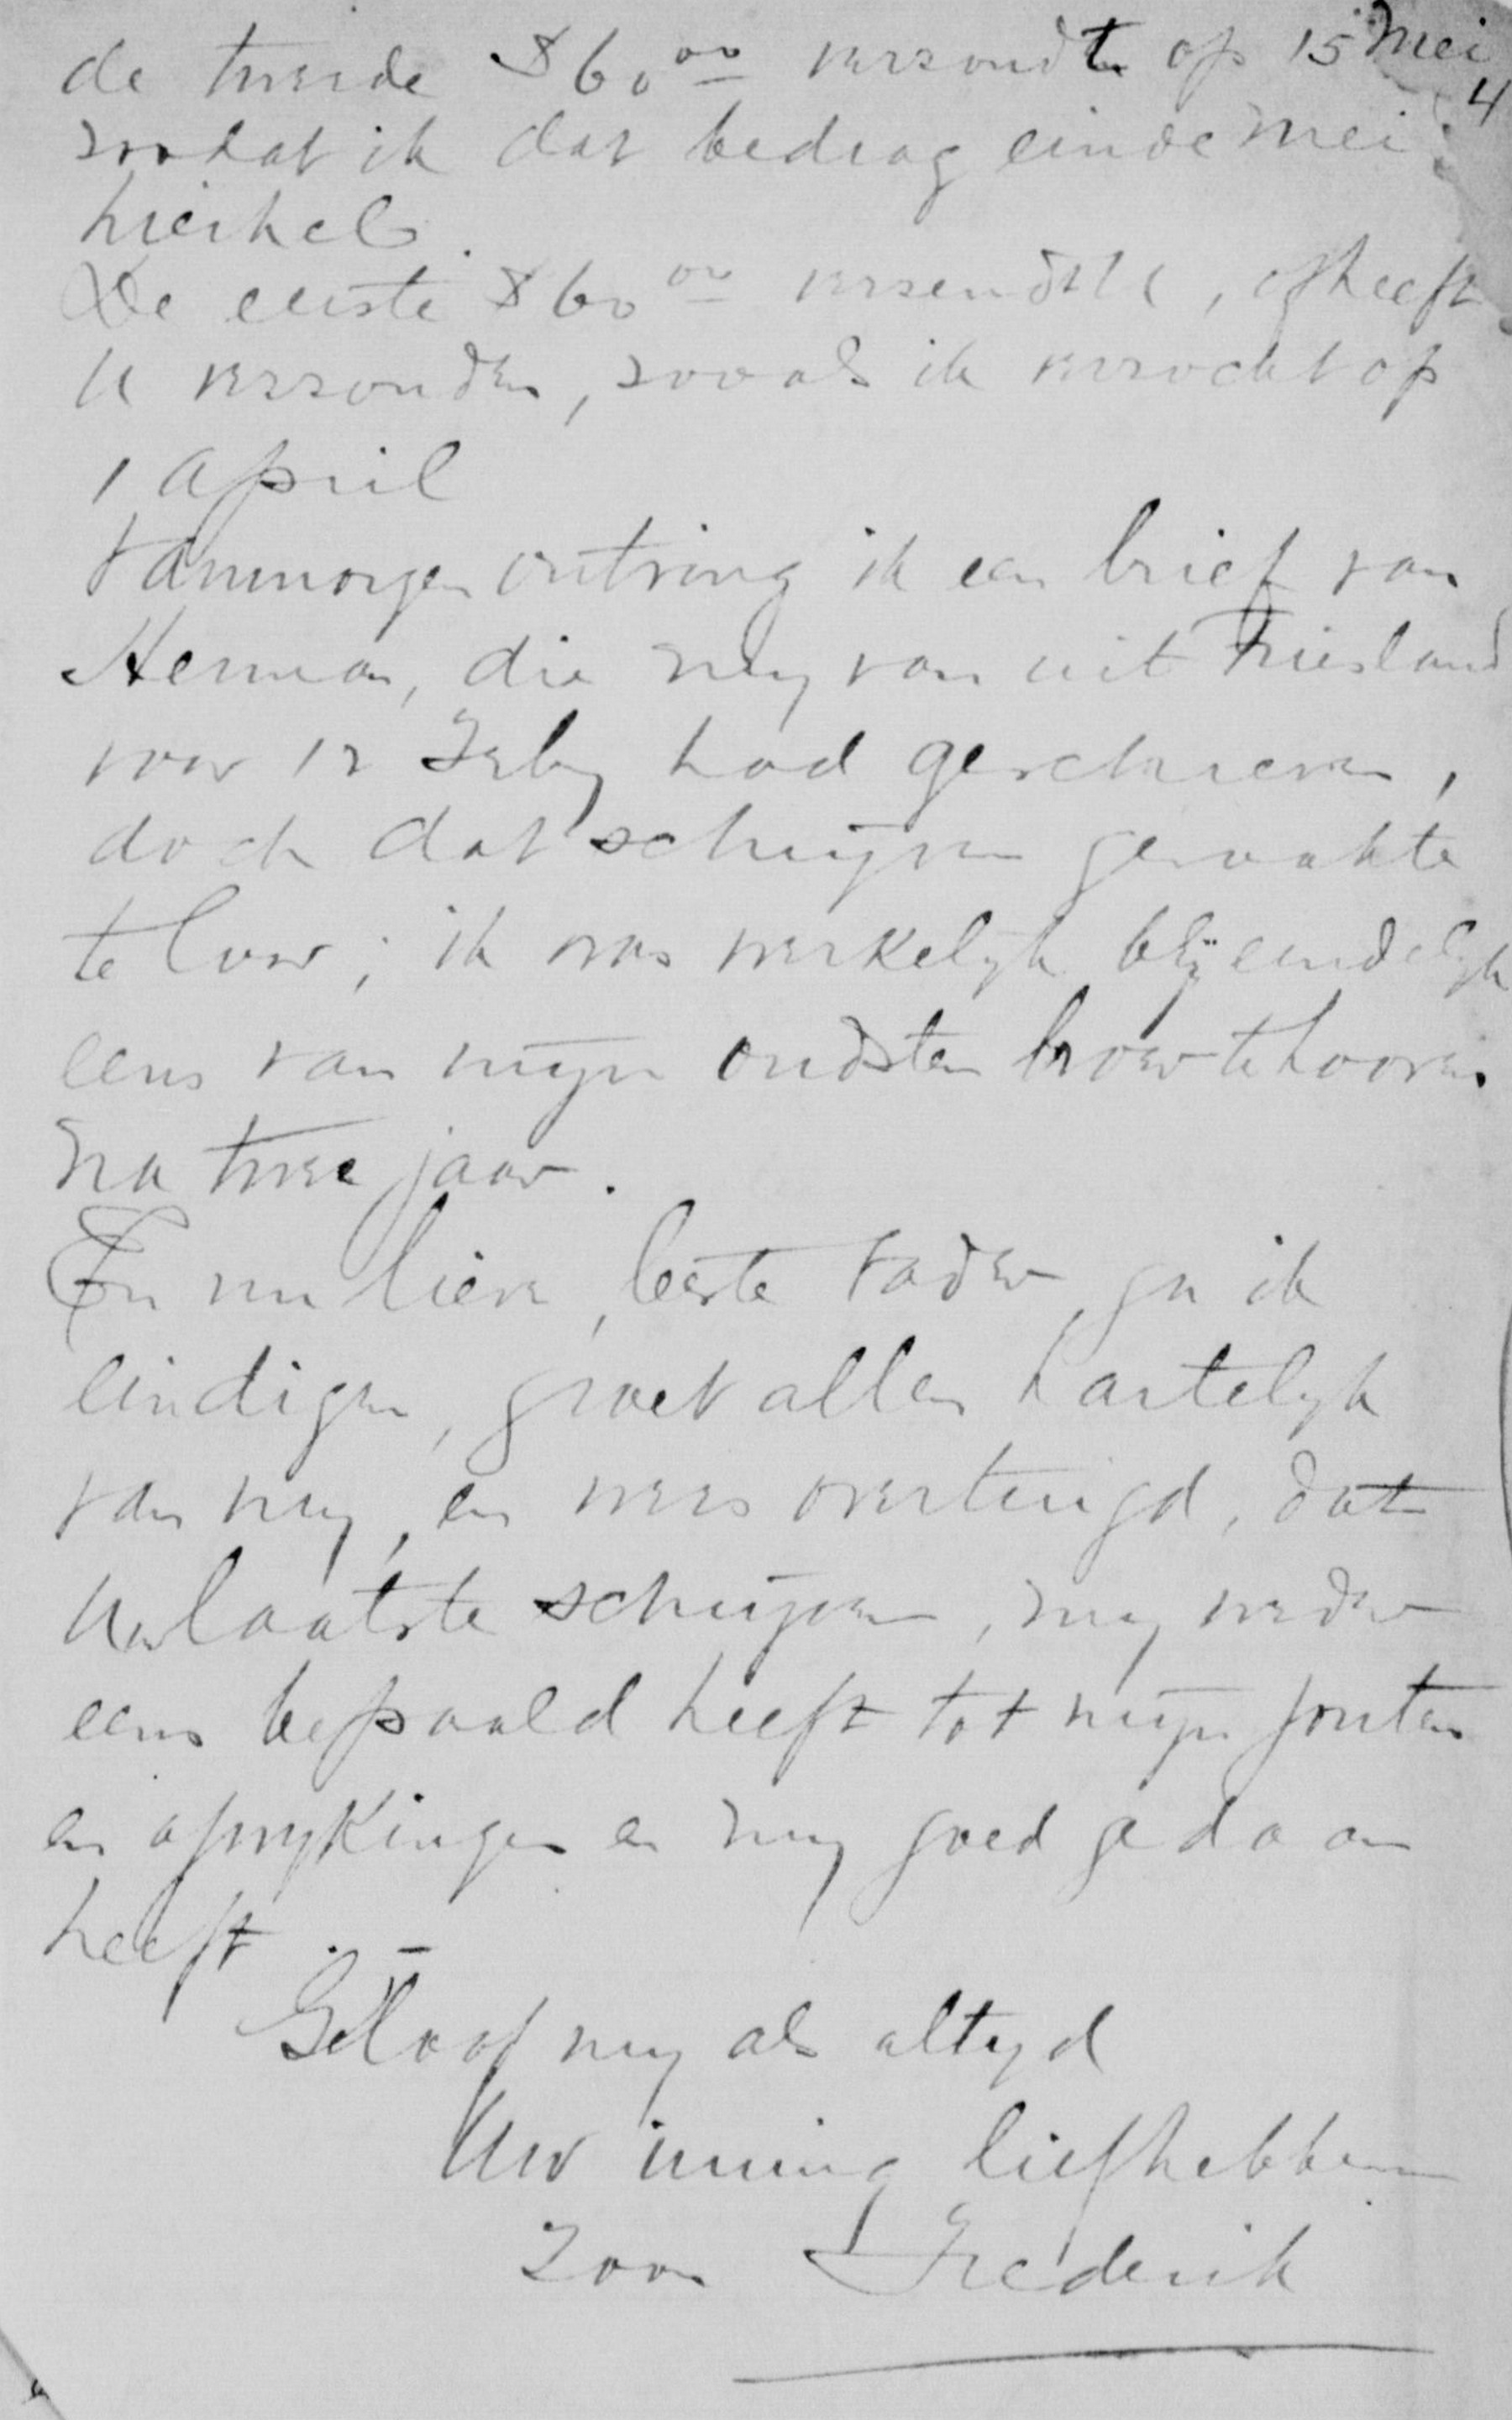 de tweede $60.00 verzondt op 15 Mei
4
zoodat ik dat bedrag einde Mei
hier heb.
De eerste $60.00 verzendt U, of heeft
U verzonden, zooals ik verzocht op
1 April
Vanmorgen ontving ik een brief van
Herman, die my van uit Friesland
voor 12 Febry had geschreven,
doch dat schrijven geraakte
te loor; ik was werkelyk blij eindelyk
eens van mijn oudsten broer te hooren
na twee jaar.
En nu lieve, beste Vader, ga ik
eindigen, groet allen hartelyk
van my, en wees overtuigd, dat
Uw laatste schrijven, my weder
eens bepaald heeft tot mijn fouten
en afwykingen en my goed gedaan
heeft.–
Geloof my als altyd
Uw innig liefhebben
Zoon Frederik